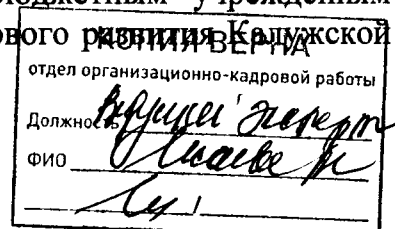 бюджетным учреждением
ового развития Калужской
КОПИЯ ВЕРНА
отдел организационно-кадровой работы
Должность Ведущий эксперт
ФИО